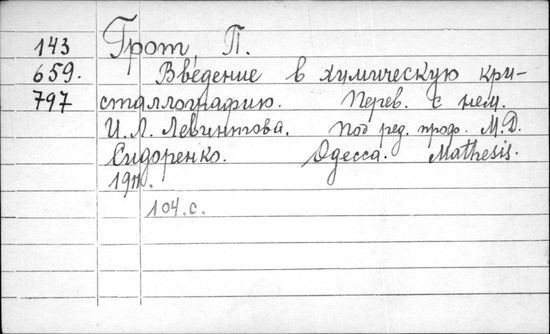 143 Грот, П.
659. Введение в химическую кри-
797 сталлографию. Перев. с нем.
И. Л. Левинтова. Под ред. проф. М. Д.
Сидоренко. Одесса. Mathesis.
1911.
104. с.